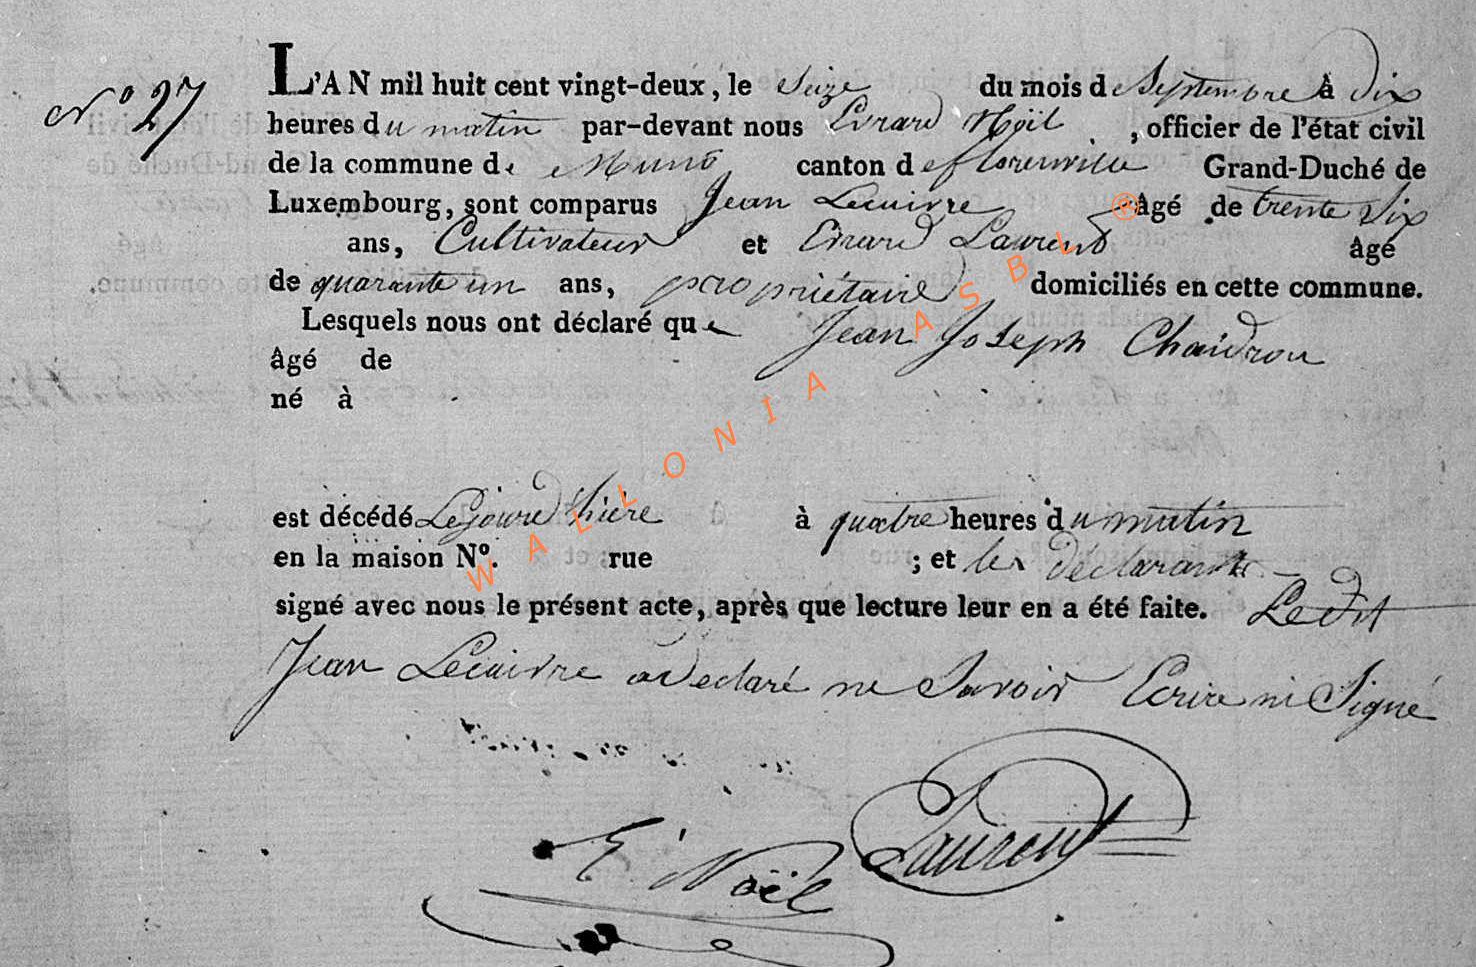 N° 27
L'AN mil huit cent vingt-deux, le Seize du mois de Septembre à dix
heures du matin par-devant nous Evrard Noël, officier de l'état civil
de la commune de Muno canton de florenville Grand-Duché de
Luxembourg, sont comparus Jean Lecuivre âgé de trente Six
ans, Cultivateur et Evrard Laurent âgé
de quarante un ans, propriétaire domiciliés en cette commune.
Lesquels nous ont déclaré que Jean Joseph Chaidron
âgé de
né à
est décédé Le jourd'hière à quatre heures du matin
en la maison N°. rue ; et les déclarants
signé avec nous le présent acte, après que lecture leur en a été faite. Ledit
Jean Lecuivre a declaré ne Savoir Ecrire ni Signé
Laurent
E Noël
WALLONIA ASBL ®